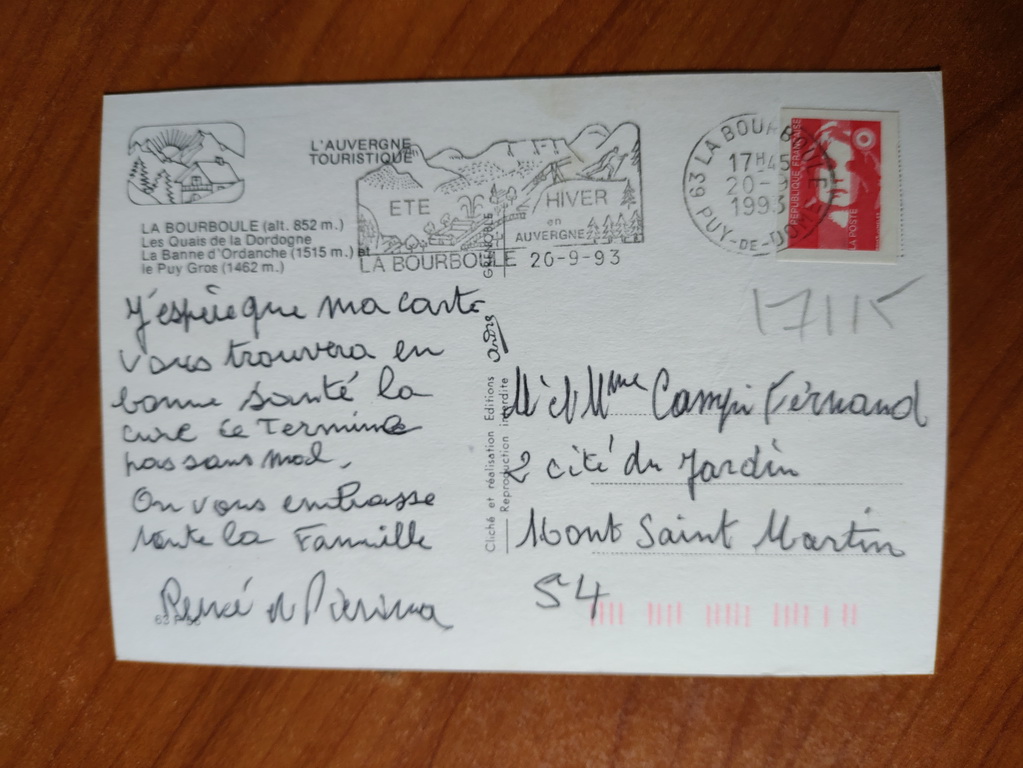 L'AUVERGNE
TOURISTIQUE
ETE
HIVER
en
AUVERGNE
LA BOURBOULE 20-9-93
63 LA BOURBOULE
17H45
20-9
1993
PUY-DE-DOME
REPUBLIQUE FRANÇAISE
LA POSTE
LA BOURBOULE (alt. 852 m.)
Les Quais de la Dordogne
La Banne d'Ordanche (1515 m.) et
le Puy Gros (1462 m.)
J'espère que ma carte
vous trouvera en
bonne santé la
cure se Termine
pas sans mal.
On vous embrasse
toute la Famille
René et Pierina
63
Cliché et réalisation Editions André GRENOBLE
Reproduction interdite
17115
Mr et Mme Campi Fernand
2 cité du Jardin
Mont Saint Martin
54